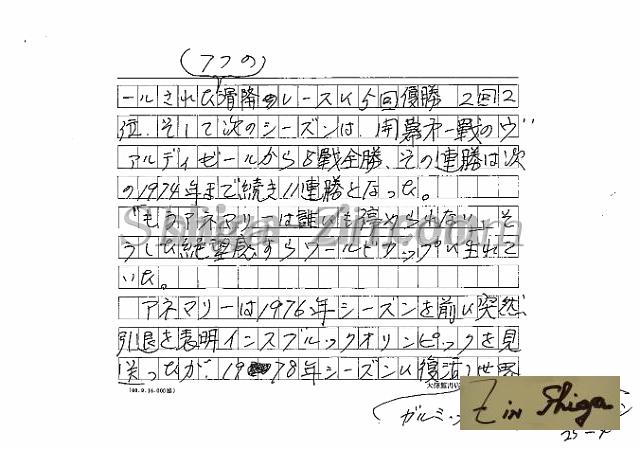 (7つの)
ールされた滑降のレースに5回優勝 2回2
位、そして次のシーズンは、開幕第一戦のヴ
ァルディゼールから8戦全勝、その連勝は次
の1974年まで続き11連勝となった。
“もうアネマリーは誰にも停められない„ そ
うした絶望感すらワールドカップに生れて
いた。
アネマリーは1976年シーズンを前に突然、
引退を表明インスブルックオリンピックを見
送ったが、1978年シーズンに復活し世界
ガルミ
Z in Shiga
25-
Shiga-Zin.com